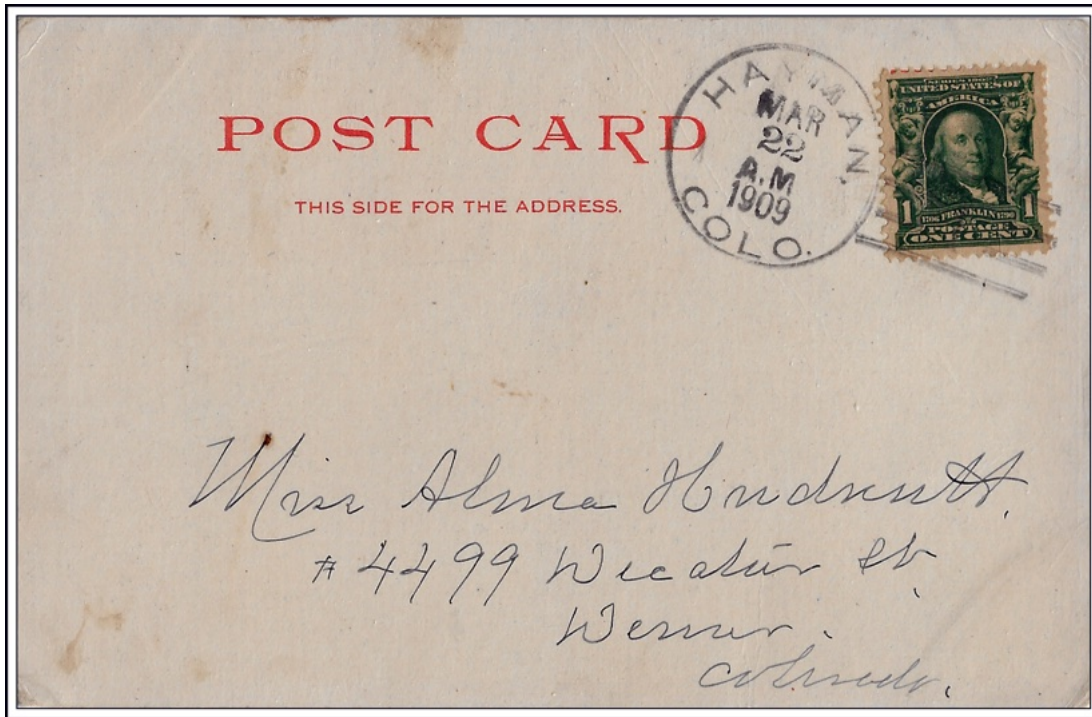 POST CARD
THIS SIDE FOR THE ADDRESS.
HAYMAN,
MAR
22
A.M
1909
COLO.
SERIES 1902
UNITED STATES OF
AMERICA
1 1706 FRANKLIN 1790 1
POSTAGE
ONE CENT
Miss Alma
# 4499 Decatur St
Denver.
Colorado.